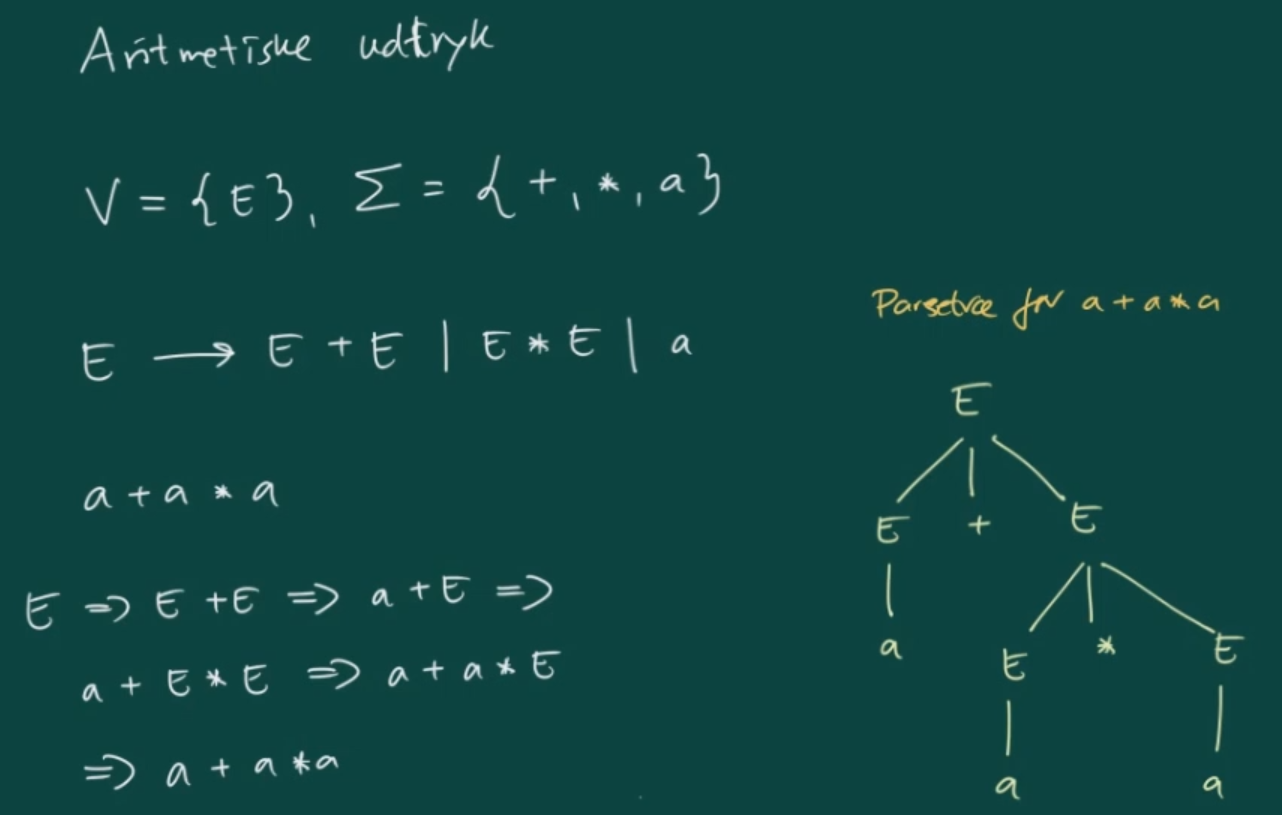 Aritmetiske udtryk
V = {E}, Σ = {+, *, a}
E → E + E | E * E | a
a + a * a
E => E + E => a + E =>
a + E * E => a + a * E
=> a + a * a
Parsetræ for a + a * a
E
E + E
a E * E
a a